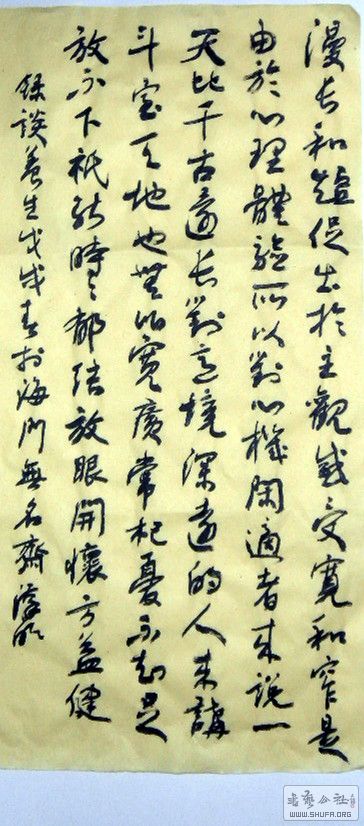 漫长和短促出於主觀感受寬和窄是
由於心理體驗所以對心機閑適者来說一
天比千古還长對意境深遠的人来講
斗室天地也無比寬廣常杞憂不知足
放不下衹能時々郁结放眼開懷方益健
錄談養生戊戌春於海门無名齋
书艺公社
WWW.SHUFA.ORG